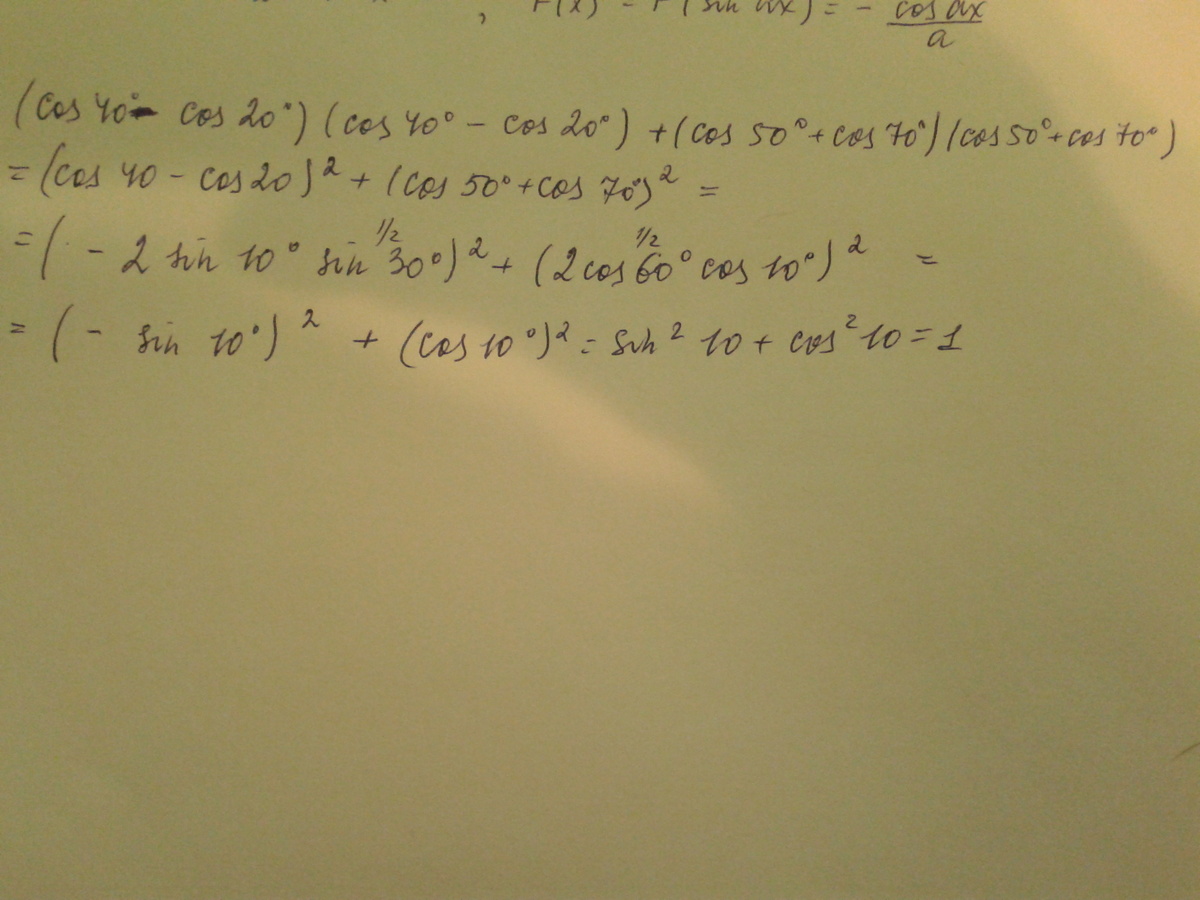 , F(x) = F(sin ax) = - cos ax / a
(cos 40° - cos 20°)(cos 40° - cos 20°) + (cos 50° + cos 70°)(cos 50° + cos 70°)
= (cos 40 - cos 20)² + (cos 50° + cos 70°)² =
= (- 2 sin 10° sin 30° 1/2)² + (2 cos 60° 1/2 cos 10°)² =
= (- sin 10°)² + (cos 10°)² = sin² 10 + cos² 10 = 1